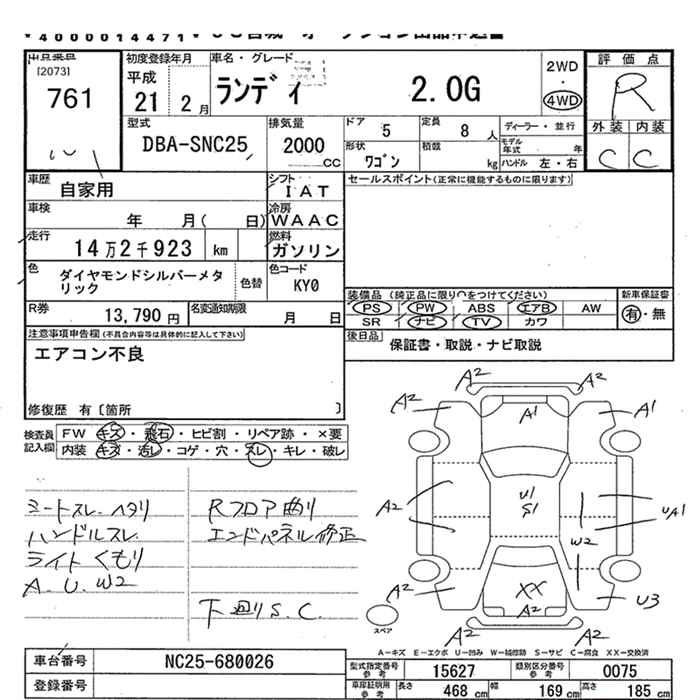 4000014471
[2073]
761
初度登録年月
平成
21 2 月
車名・グレード
ランディ 2.0G
2WD
・
4WD
評価点
R
外装 内装
C C
型式
DBA-SNC25
排気量
2000 CC
ドア 5
定員 8 人
ディーラー・並行
形状 ワゴン
積載 kg
モデル年式 年
ハンドル 左・右
車歴 自家用
シフト IAT
セールスポイント(正常に機能するものに限ります)
車検 年 月( 日)
冷房 WAAC
走行 14万2千923 km
燃料 ガソリン
色 ダイヤモンドシルバーメタリック
色替
色コード KY0
R券 13,790 円
名変通知期限 月 日
装備品 (純正品に限り○をつけてください)
PS PW ABS エアB AW
SR ナビ TV カワ
新車保証書
有・無
後日品 保証書・取説・ナビ取説
注意事項申告欄(不具合内容等は具体的に記入して下さい)
エアコン不良
修復歴 有〔箇所 〕
検査員記入欄
FW キズ・飛石・ヒビ割・リペア跡・×要
内装 キズ・汚レ・コゲ・穴・スレ・キレ・破レ
シートスレ. ヘタリ
ハンドルスレ.
ライトくもり
A. U. W2
Rフロア曲り
エンドパネル修正
下廻り S.C.
A2 A2
A2 A1 A1
A2 U1 S1 UA1
W2
A2 XX U3
A2
A2 A2
スペア
A-キズ E-エクボ U-凹み W-補修跡 S-サビ C-腐食 XX-交換済
車台番号 NC25-680026
登録番号
型式指定番号 参考 15627
類別区分番号 参考 0075
車庫証明用 参考 長さ 468 cm 幅 169 cm 高さ 185 cm